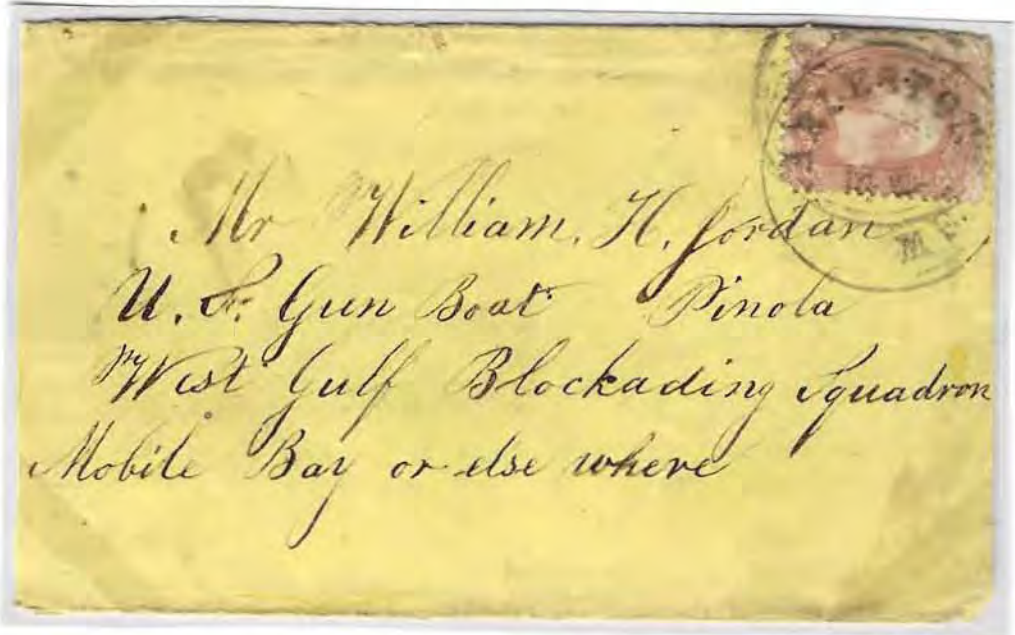 Mr William. H. Jordan
U. S. Gun Boat Pinola
West Gulf Blockading Squadron
Mobile Bay or else where